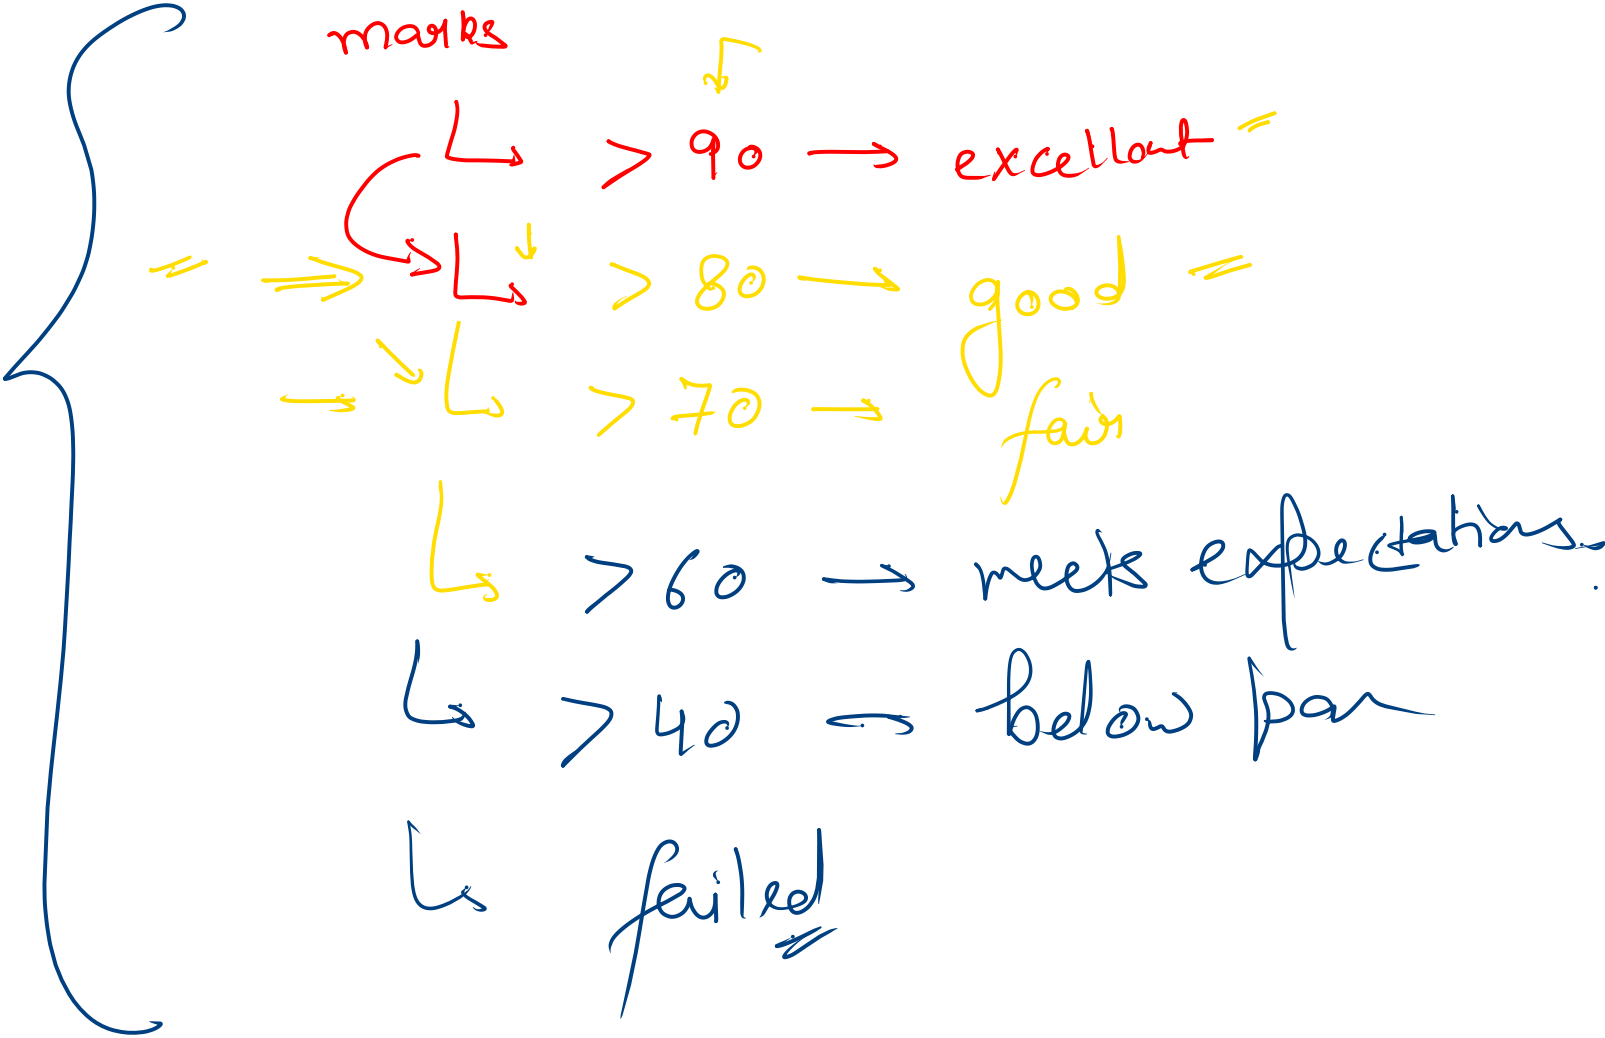 marks
> 90 → excellent
> 80 → good
> 70 → fair
> 60 → meets expectations.
> 40 → below par
failed